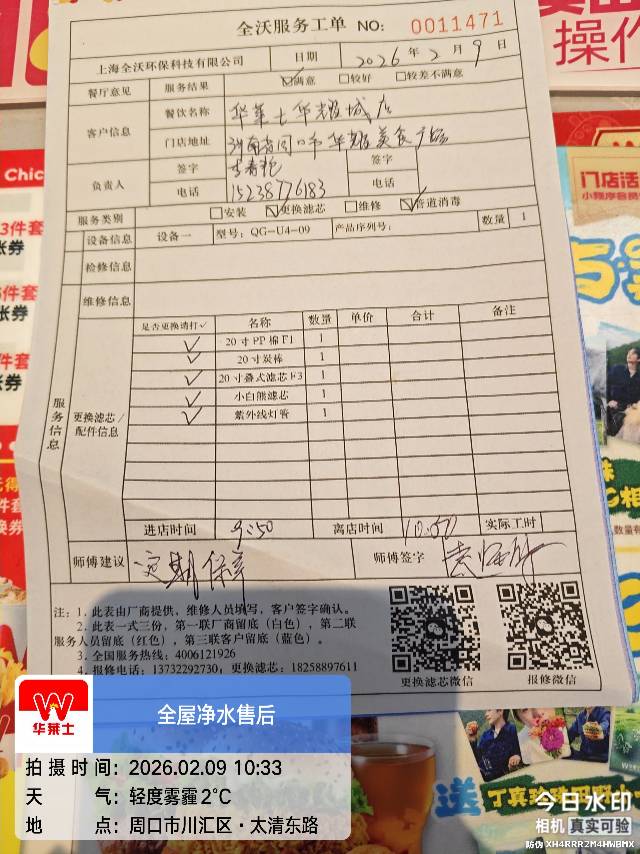 全沃服务工单 NO: 0011471
上海全沃环保科技有限公司 日期 2026年2月9日
餐厅意见 服务结果 ☑满意 □较好 □较差不满意
客户信息 餐饮名称 华莱士华耀城店
门店地址 河南省周口市华耀美食广场
负责人 签字 签字
电话 15238776183 电话
服务类别 □安装 ☑更换滤芯 □维修 ☑管道消毒
设备信息 设备一 型号: QG-U4-09 产品序列号: 数量 1
检修信息
维修信息
服务信息
更换滤芯/配件信息
是否更换请打✓ 名称 数量 单价 合计 备注
✓ 20寸PP棉F1 1
✓ 20寸炭棒 1
✓ 20寸叠式滤芯F3 1
✓ 小白熊滤芯 1
✓ 紫外线灯管 1
进店时间 9:50 离店时间 10:50 实际工时
师傅建议 定期保养 师傅签字
注: 1. 此表由厂商提供, 维修人员填写, 客户签字确认。
2. 此表一式三份, 第一联厂商留底(白色), 第二联
服务人员留底(红色), 第三联客户留底(蓝色)。
3. 全国服务热线: 4006121926
4. 报修电话: 13732292730; 更换滤芯: 18258897611
更换滤芯微信 报修微信
Chic
3件套
张券
件套
张券
件套
张券
操作
门店活
小程序会员
华莱士
全屋净水售后
拍摄时间: 2026.02.09 10:33
天气: 轻度雾霾 2℃
地点: 周口市川汇区·太清东路
送
丁真珍珠
今日水印
相机 真实可验
防伪 XH4RRR2M4HWBMX